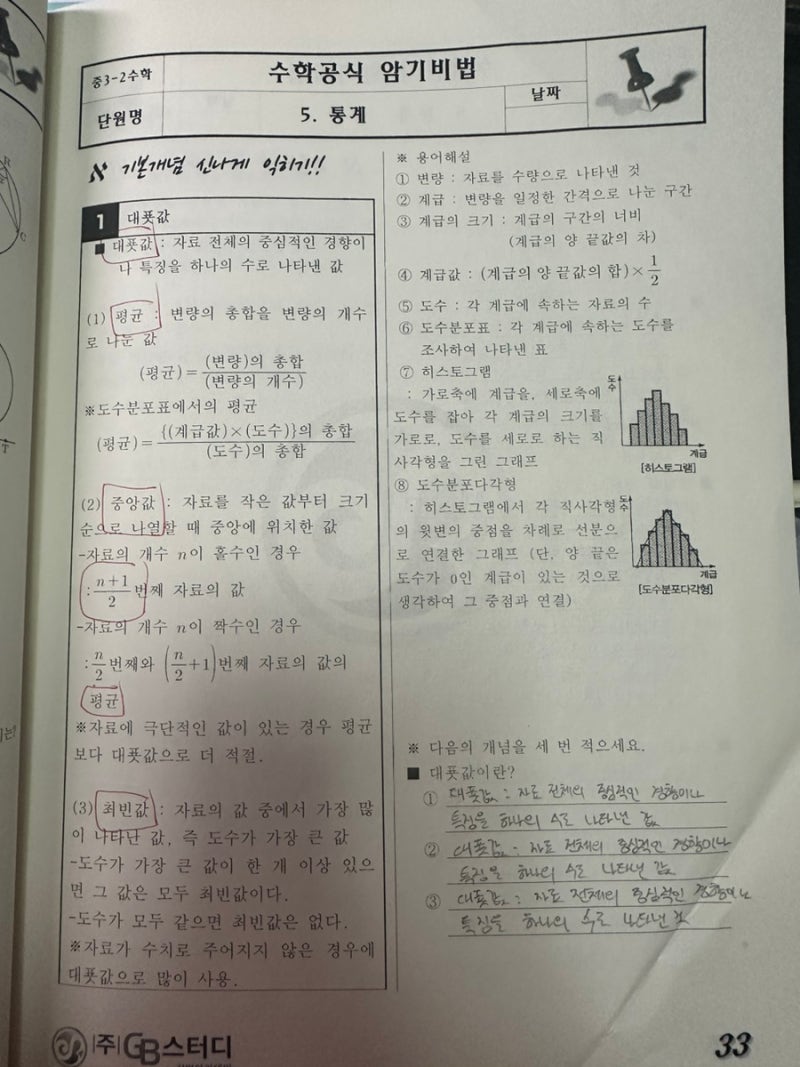 중3-2수학
수학공식 암기비법
단원명
5. 통계
날짜
א 기본개념 신나게 익히기!!
1 대푯값
■ 대푯값 : 자료 전체의 중심적인 경향이
나 특징을 하나의 수로 나타낸 값
(1) 평균 : 변량의 총합을 변량의 개수
로 나눈 값
(평균) = (변량)의 총합 / (변량의 개수)
※도수분포표에서의 평균
(평균) = {(계급값)×(도수)}의 총합 / (도수)의 총합
(2) 중앙값 : 자료를 작은 값부터 크기
순으로 나열할 때 중앙에 위치한 값
-자료의 개수 n이 홀수인 경우
: (n+1)/2 번째 자료의 값
-자료의 개수 n이 짝수인 경우
: n/2 번째와 (n/2+1)번째 자료의 값의
평균
※자료에 극단적인 값이 있는 경우 평균
보다 대푯값으로 더 적절.
(3) 최빈값 : 자료의 값 중에서 가장 많
이 나타난 값, 즉 도수가 가장 큰 값
-도수가 가장 큰 값이 한 개 이상 있으
면 그 값은 모두 최빈값이다.
-도수가 모두 같으면 최빈값은 없다.
※자료가 수치로 주어지지 않은 경우에
대푯값으로 많이 사용.
※ 용어해설
① 변량 : 자료를 수량으로 나타낸 것
② 계급 : 변량을 일정한 간격으로 나눈 구간
③ 계급의 크기 : 계급의 구간의 너비
(계급의 양 끝값의 차)
④ 계급값 : (계급의 양 끝값의 합)×1/2
⑤ 도수 : 각 계급에 속하는 자료의 수
⑥ 도수분포표 : 각 계급에 속하는 도수를
조사하여 나타낸 표
⑦ 히스토그램
: 가로축에 계급을, 세로축에
도수를 잡아 각 계급의 크기를
가로로, 도수를 세로로 하는 직
사각형을 그린 그래프
도수
계급
[히스토그램]
⑧ 도수분포다각형
: 히스토그램에서 각 직사각형
의 윗변의 중점을 차례로 선분으
로 연결한 그래프 (단, 양 끝은
도수가 0인 계급이 있는 것으로
생각하여 그 중점과 연결)
도수
계급
[도수분포다각형]
※ 다음의 개념을 세 번 적으세요.
■ 대푯값이란?
① 대푯값 : 자료 전체의 중심적인 경향이나
특징을 하나의 수로 나타낸 값
② 대푯값 : 자료 전체의 중심적인 경향이나
특징을 하나의 수로 나타낸 값
③ 대푯값 : 자료 전체의 중심적인 경향이나
특징을 하나의 수로 나타낸 값
(주)GB스터디
33